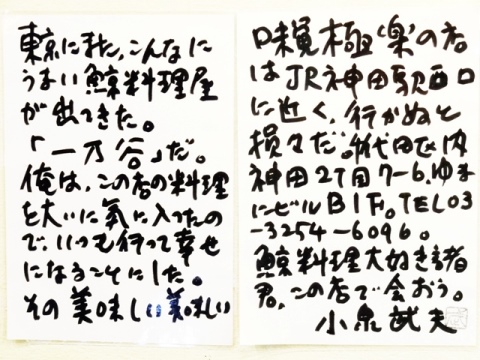 東京にまた、こんなに
うまい鯨料理屋
が出てきた。
「一乃谷」だ。
俺は、この店の料理
を大いに気に入ったの
で、いつも行って幸せ
になることにした。
その美味しい美味しい
味覚極楽の店
はJR神田駅西口
に近く、行かぬと
損々だ。千代田区内
神田2丁目7-6、ゆま
にビルB1F。TEL03
-3254-6096。
鯨料理大好き諸
君、この店で会おう。
小泉武夫